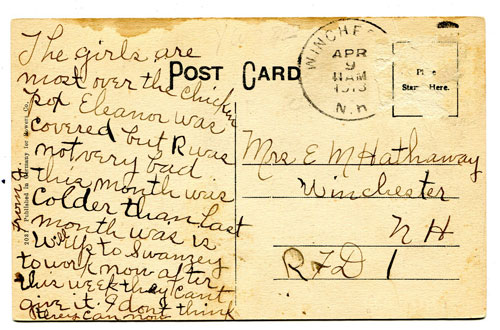 The girls are
most over the chicken
pox Eleanor was
covered but R was
not very bad
this month was
colder than last
month was is
Will up to Swanzey
to work now after
this week they cant
give it. I don't think
they can now
POST CARD
Published in Germany for
WINCHES
APR
9
11 AM
N.H
Place
Stamp Here.
Mrs. E M Hathaway
Winchester
N H
RFD 1